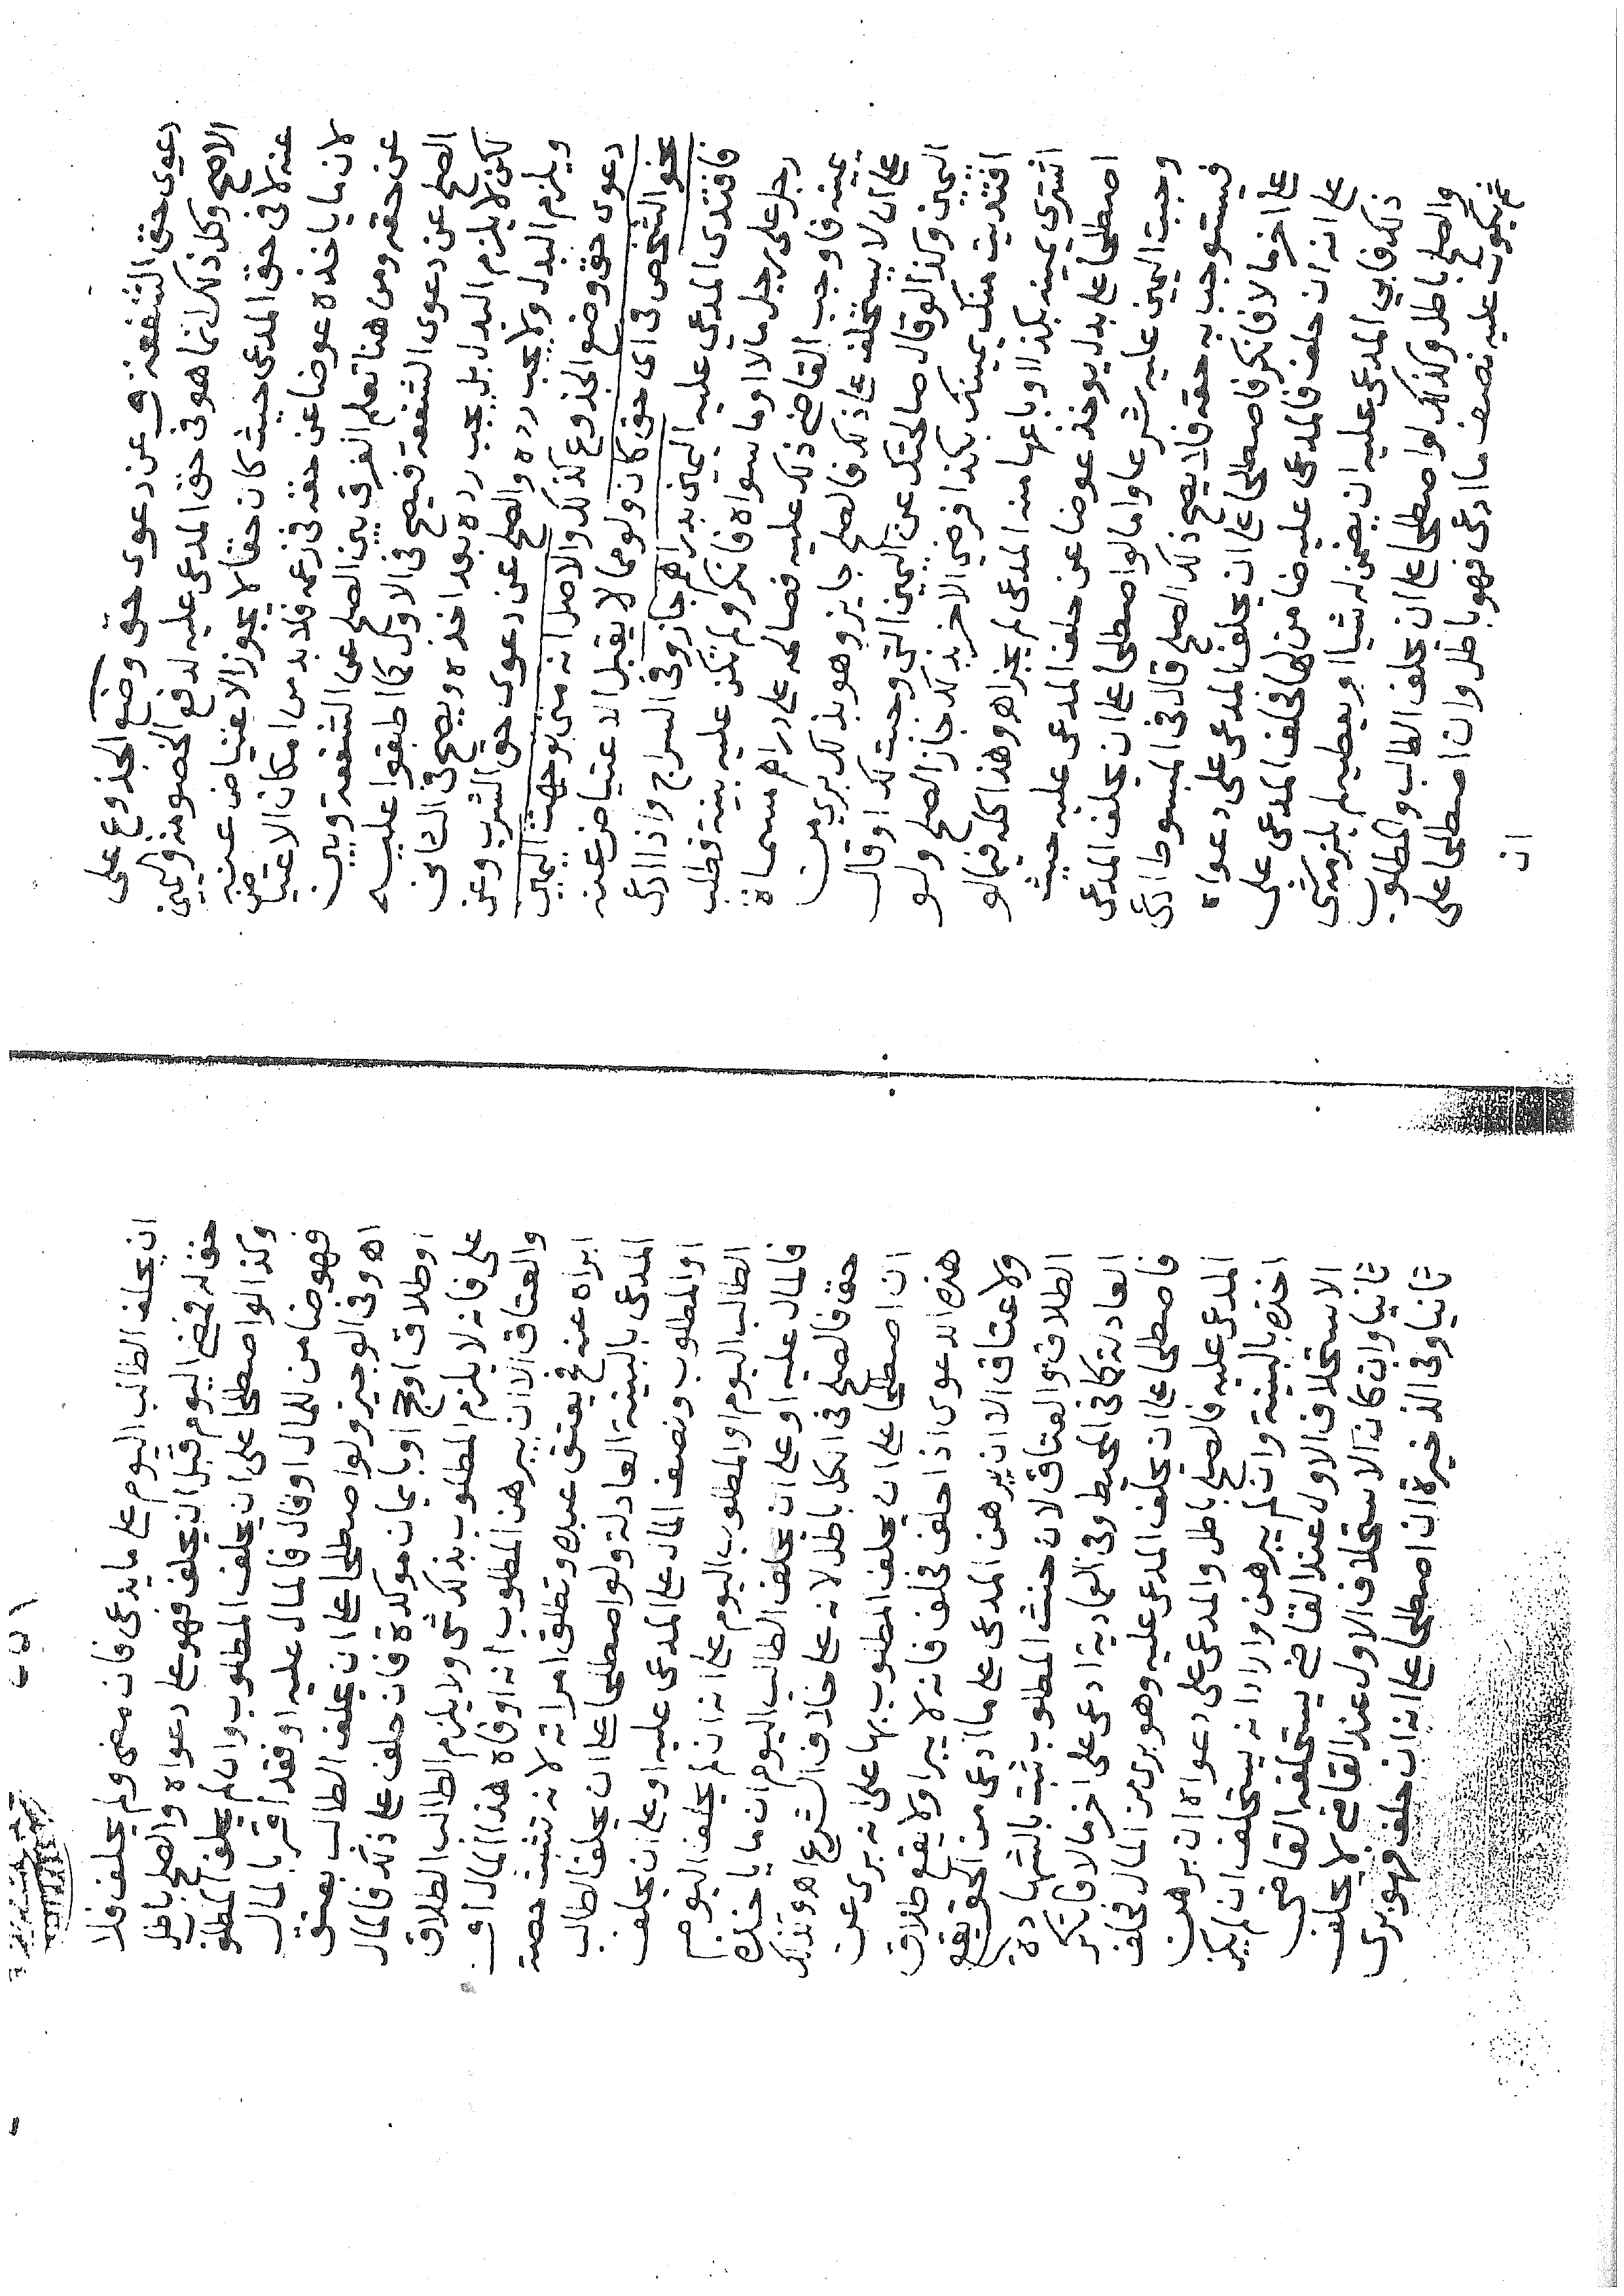 دعوى حق الشفعة وعن دعوى حق وضع الجذوع على
الاصح وكل ذلك انما هو في حق المدعى عليه لدفع الخصومة واليمين
عنه لا في حق المدعى حيث كان حقا لا يجوز الاعتياض عنه
لان ما ياخذه عوضا عن حقه في زعمه فلا بد من امكان الاعتياض
عن حقه ومن هنا تعلم الفرق بين الصلح عن الشفعة وبين
الصلح عن دعوى الشفعة فيصح في الاول كما اطبقوا عليه
لكن لا يلزم البدل بل يجب رده بعد اخذه ويصح في الثاني
ويلزم البدل ولا يجب رده والصلح عن دعوى حق الشرب وعن
دعوى حق وضع الجذوع كذلك والاصل انه متى توجهت اليمين
نحو الشخص في اى حق كان ولو مما لا يقبل الاعتياض عنه
فافتدى المدعى عليه اليمين بدراهم جاز وفي السراج واذا ادعى
رجل على رجل مالا او ما سواه فانكر ولم تكن عليه بينة فطلب
يمينه فاوجب القاضي ذلك عليه فصالحه على دراهم مسماة
على ان لا يستحلف على ذلك فالصلح جايز وهو بذلك بري من
اليمين وكذا لو قال صالحتك عن اليمين التي وجبت لك او قال
افتديت منك يمينك بكذا فرضي الاخر بذلك جاز الصلح ولو
اشترى يمينه بكذا او باعها منه المدعى لم يجز اه وهذا كله فيما لو
اصطلحا على بدل يوخذ عوضا عن حلف المدعى عليه حيث
وجبت اليمين عليه شرعا واما لو اصطلحا على ان يحلف المدعى
فيستوجب به حقه فلا يصح ذلك الصلح قال في المبسوط ادعى
على اخر مالا فانكر فاصطلحا على ان يحلف المدعى على دعواه
على انه ان حلف فالمدعى عليه ضامن لها فحلف المدعى على
ذلك فابي المدعى عليه ان يضمن له شيا او يعطيه لم يلزمه شي
والصلح باطل وكذلك لو اصطلحا على ان يحلف الطالب والمطلوب
ثم يكون عليه نصف ما ادعى فهو باطل وان اصطلحا على
ان
ان يحلف الطالب اليوم على ما يدعى فان مضى ولم يحلف فلا
حق له فمضى اليوم قبل ان يحلف فهو على دعواه والصلح باطل
وكذا لو اصطلحا على ان يحلف المطلوب وان لم يحلف المطلوب
فهو ضامن للمال او قال فالمال عليه او فقد اقر بالمال
اه وفي الوجيز ولو اصطلحا على ان يحلف الطالب بعتق
او طلاق او حج او بايمان موكدة فان حلف على ذلك فالمال
على فانه لا يلزم المطلوب بذلك شي ولا يلزم الطالب الطلاق
والعتاق الا ان يبرهن المطلوب انه اوفاه هذا المال او
ابراه عنه فيعتق عبده وتطلق امراته لانه تثبت حصة
المدعى بالبينة العادلة ولو اصطلحا على ان يحلف الطالب
او المطلوب ونصف المال على المدعى عليه او على ان يحلف
الطالب اليوم او المطلوب اليوم على انه ان لم يحلف اليوم
فالمال عليه او على ان يحلف الطالب اليوم ان ما ياخذه
حق فالصلح في الكل باطل لانه على خلاف الشرع اه وكذلك
ان اصطلحا على ان يحلف المطلوب بها على انه بري عن
هذه الدعوى اذا حلف فحلف فانه لا يبرا ولا يقع طلاق
ولا عتاق الا ان يبرهن المدعى على ما ادعى من الحق فيقع
الطلاق والعتاق لان حنث المطلوب ثبت بالشهادة
العادلة كما في المحيط وفي العمادية ادعى على اخر مالا فانكر
فاصطلحا على ان يحلف المدعى عليه وهو بري من المال فحلف
المدعى عليه فالصلح باطل والمدعى على دعواه ان برهن
اخذه بالبينة وان لم يبرهن واراد انه يستحلف ان لم يكن
الاستحلاف الاول عند القاضي يستحلفه القاضي
ثانيا وان كان الاستحلاف الاول عند القاضي لا يحلف
ثانيا وفي الذخيرة ان اصطلحا على انه ان حلف فهو بري